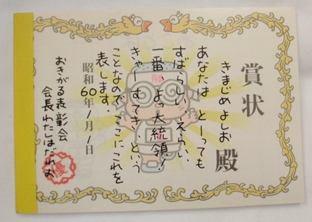 賞状
きまじめよしお 殿
あなたは とーっても
すばらしい、えらい、
一番、よっ大統領!
きゃーすてき、という
ことなので、ここにこれを
表します。
昭和60年1月1日
おきがる表彰会
会長わたしはだれお